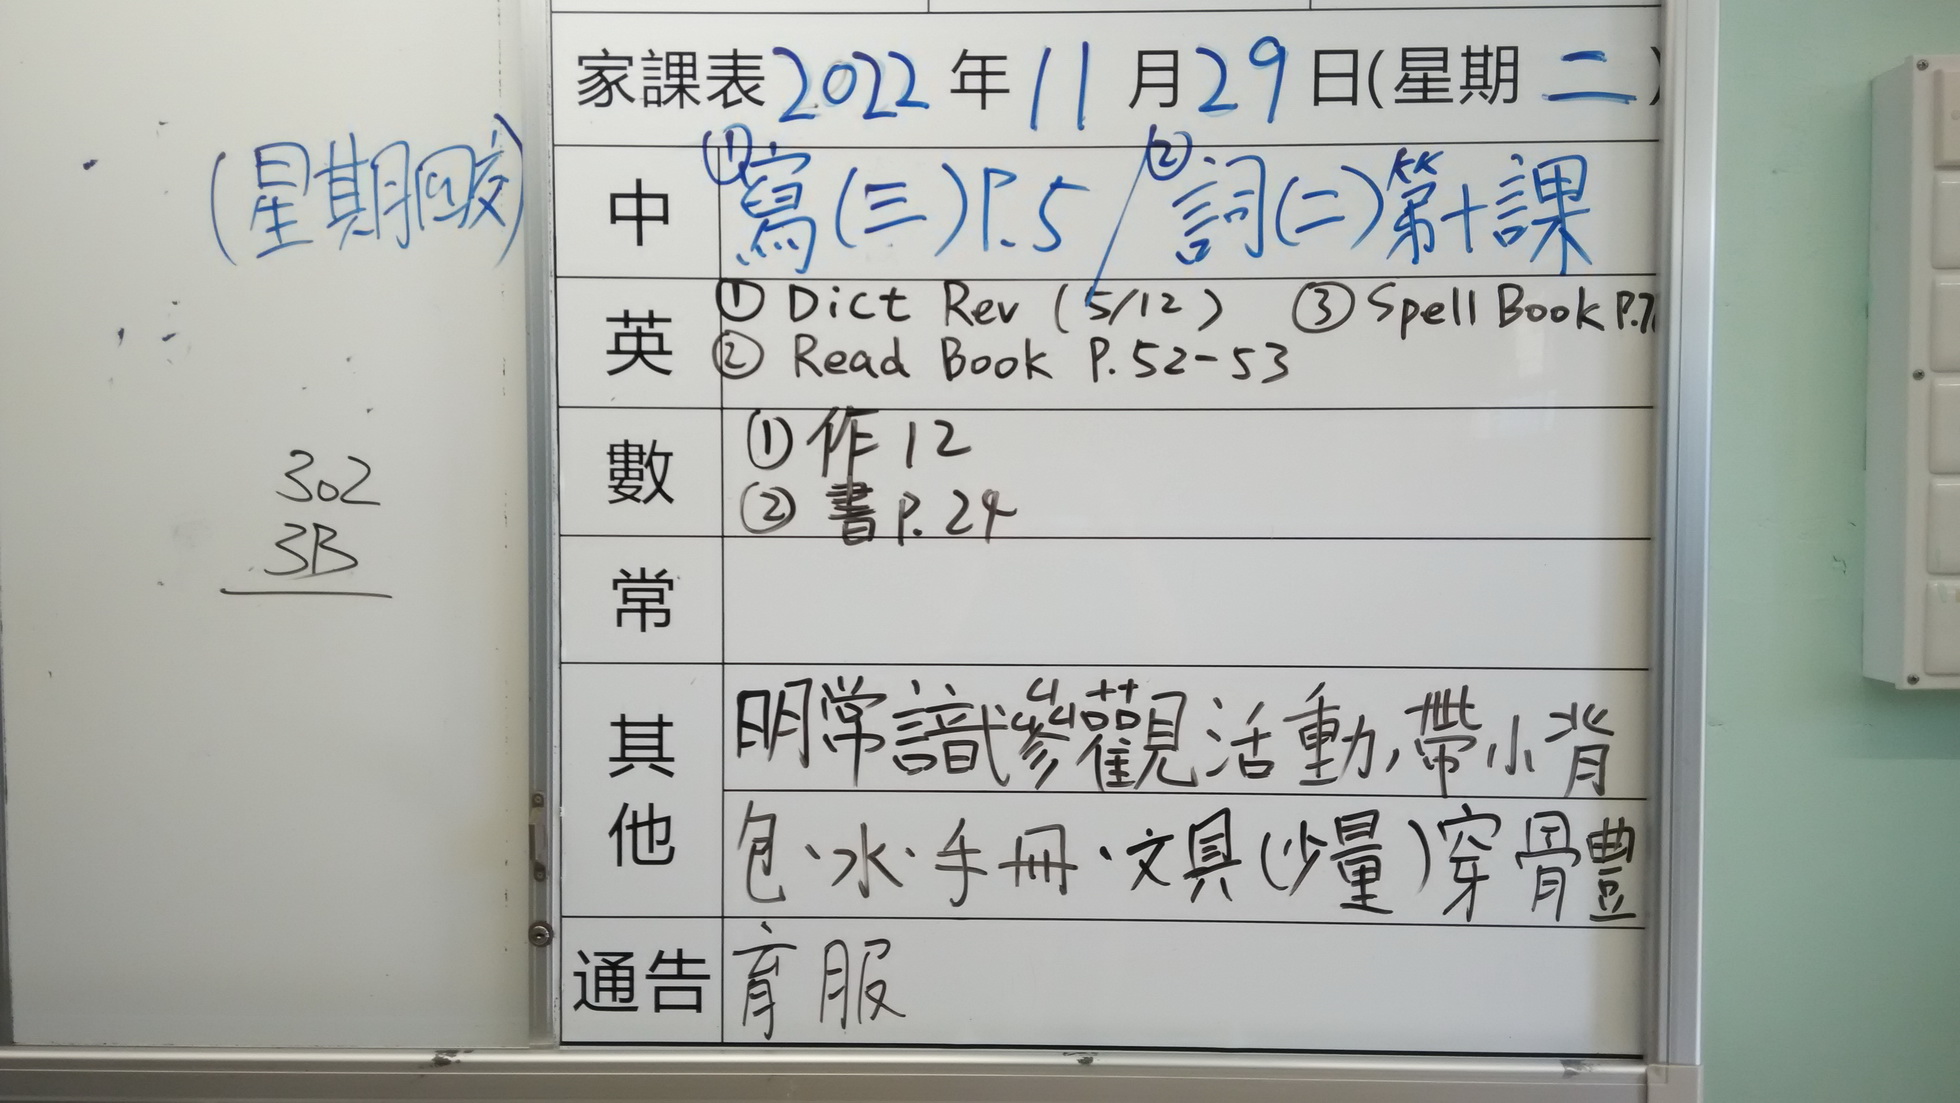 家課表2022年11月29日(星期二)
(星期四交)
中 ①寫(三)P.5 / ②詞(二)第十課
英 ① Dict Rev (5/12) ③ Spell Book P.7
② Read Book P.52-53
數 ①作12
②書P.24
302
3B
常
其他 明常識參觀活動,帶小背
包、水、手冊、文具(少量)穿體
通告 育服